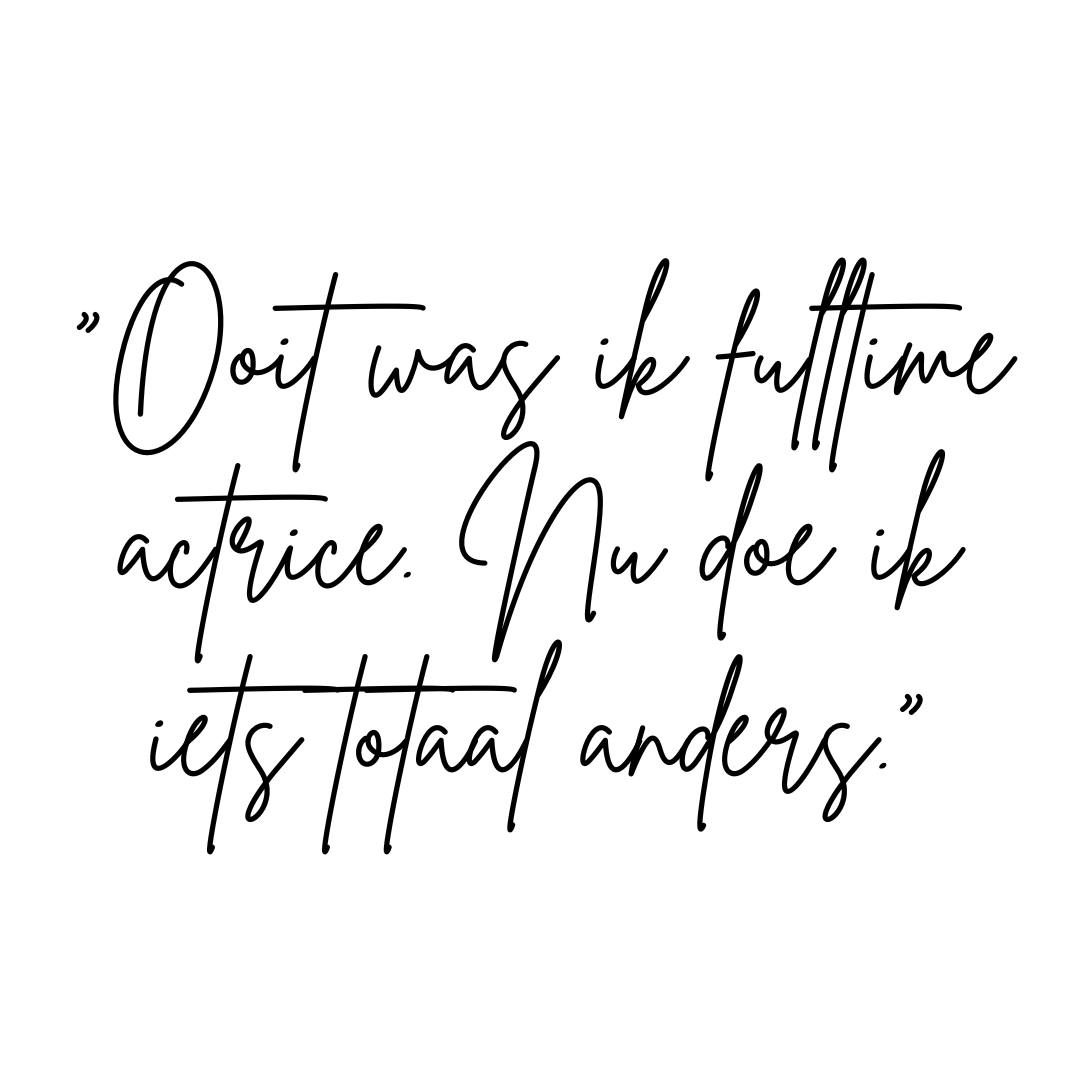 ”Ooit was ik fulltime
actrice. Nu doe ik
iets totaal anders.”